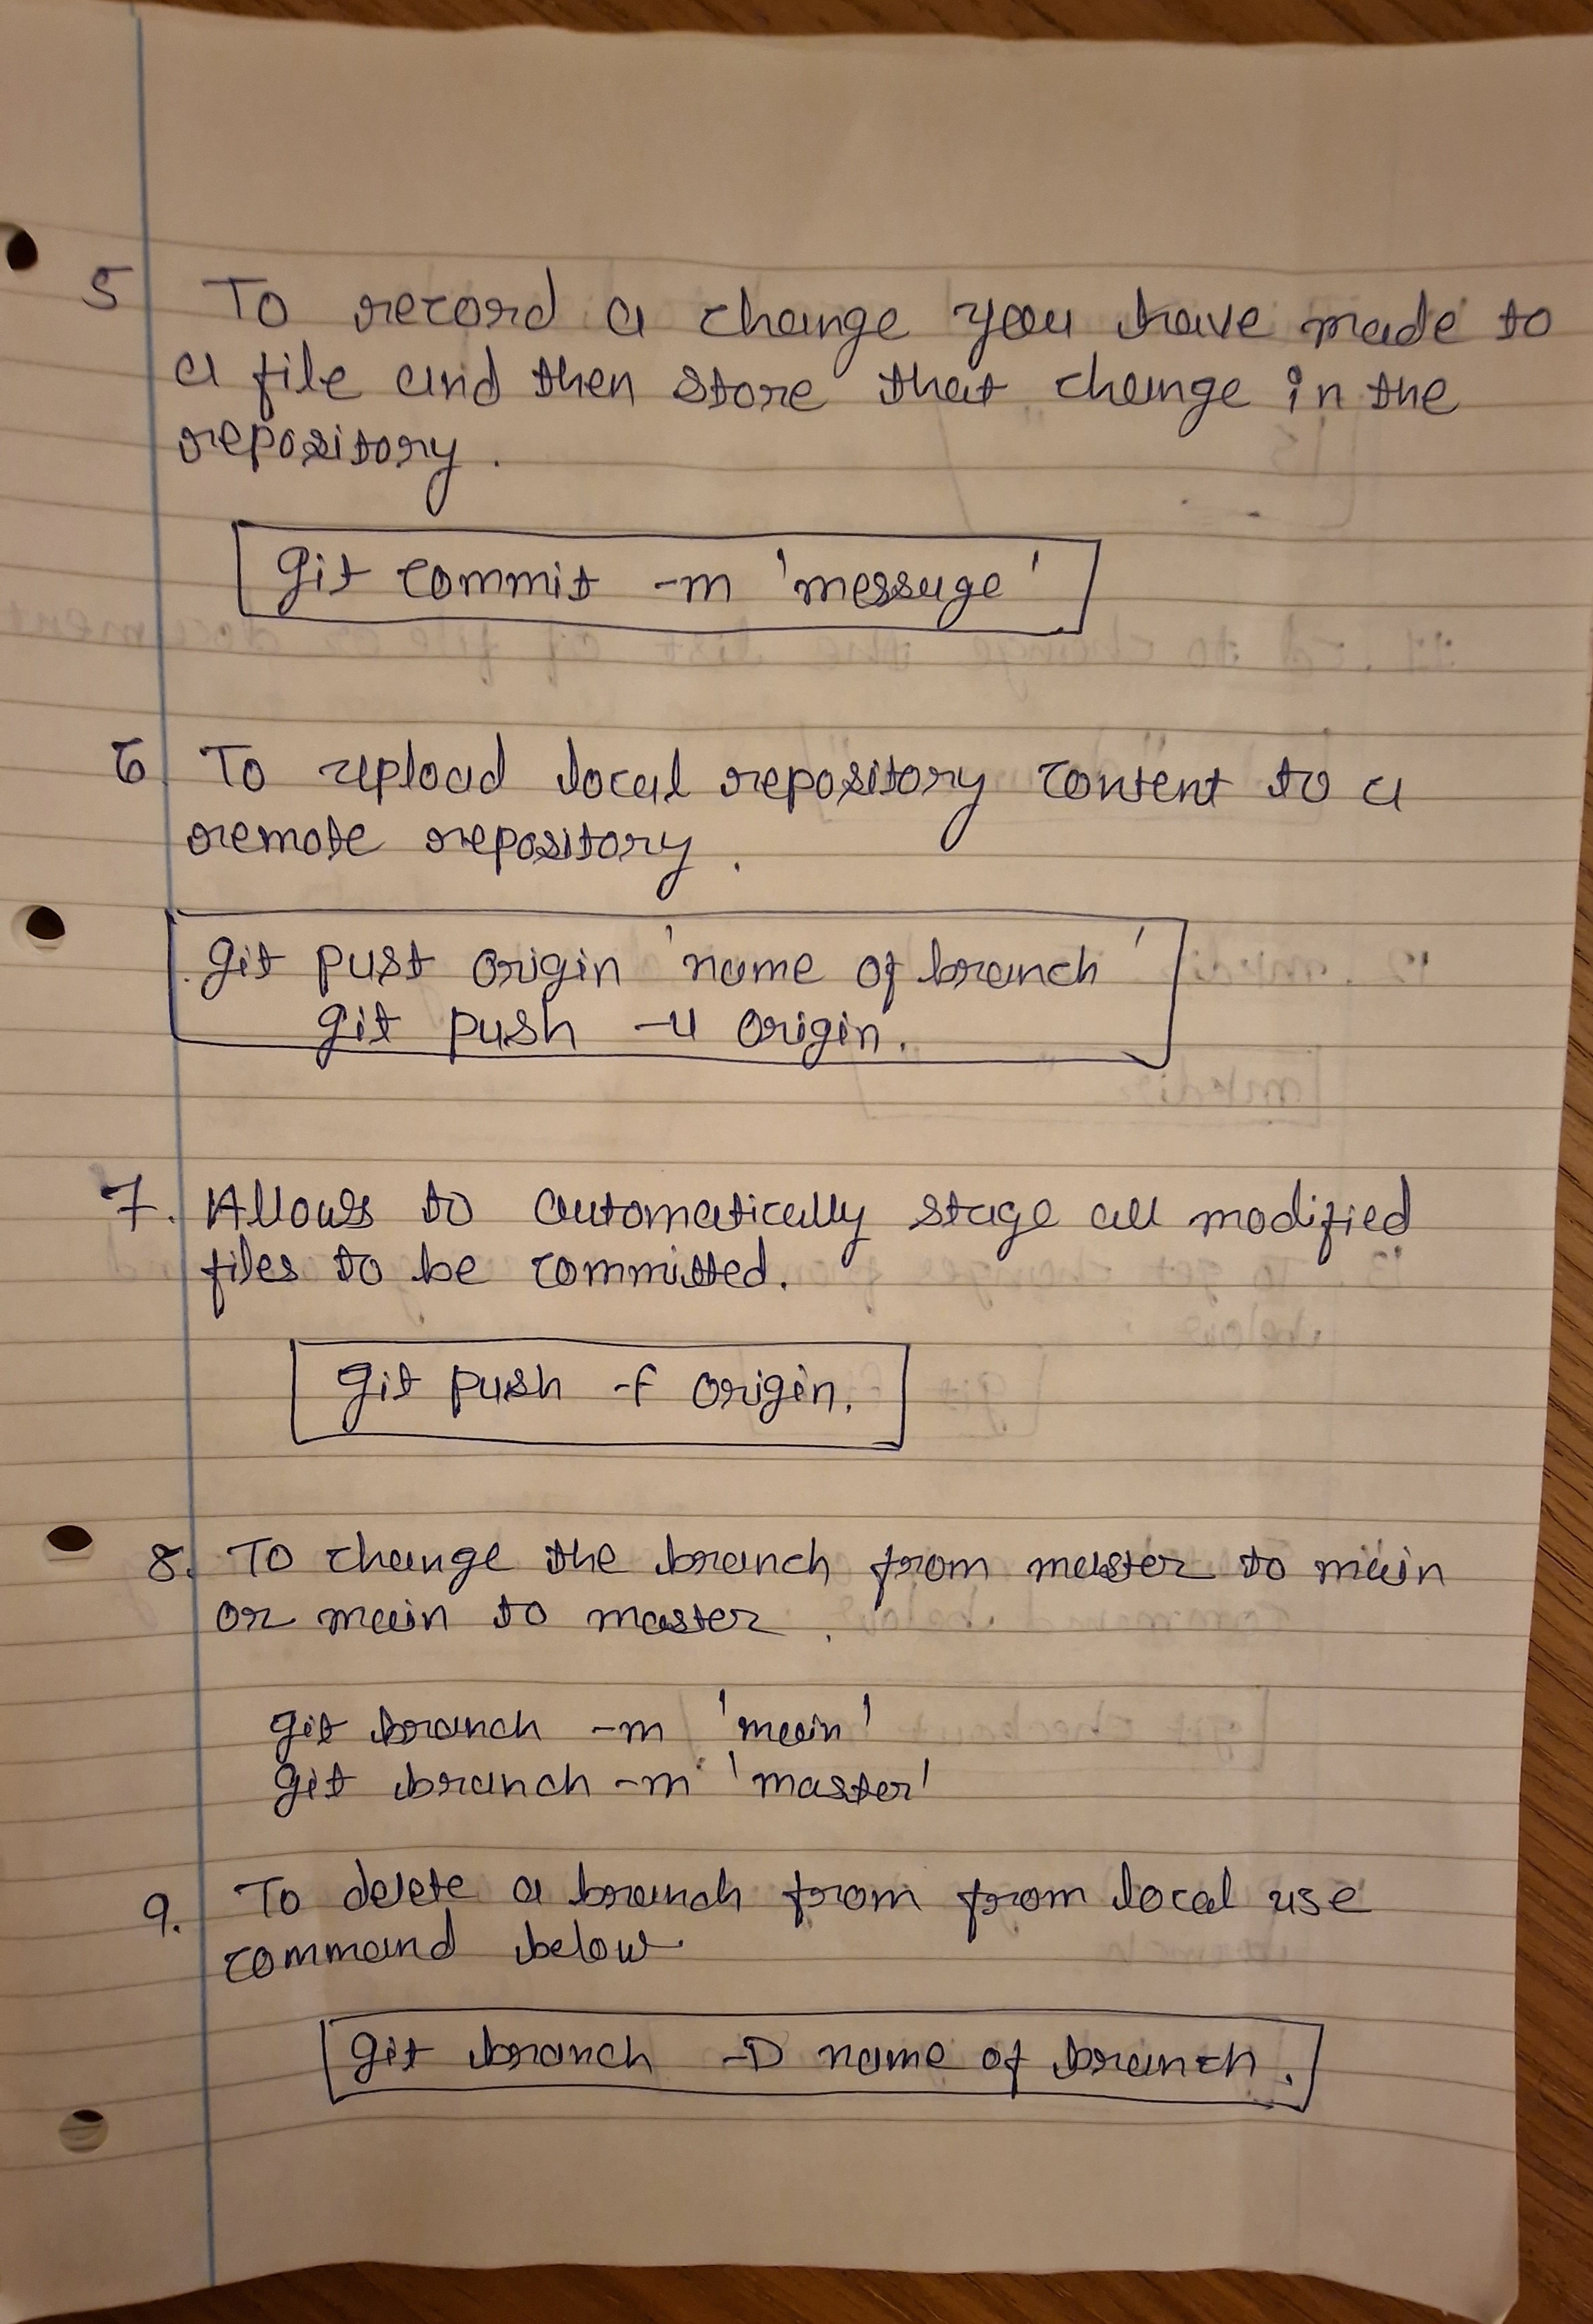 5 To record a change you have made to
a file and then store that change in the
repository.
git commit -m 'message'
6. To upload local repository content to a
remote repository.
git pust origin 'name of branch'
git push -u origin.
7. Allows to automatically stage all modified
files to be committed.
git push -f origin.
8. To change the branch from master to main
or main to master.
git branch -m 'main'
git branch -m 'master'
9. To delete a branch from from local use
command below
git branch -D name of branch.